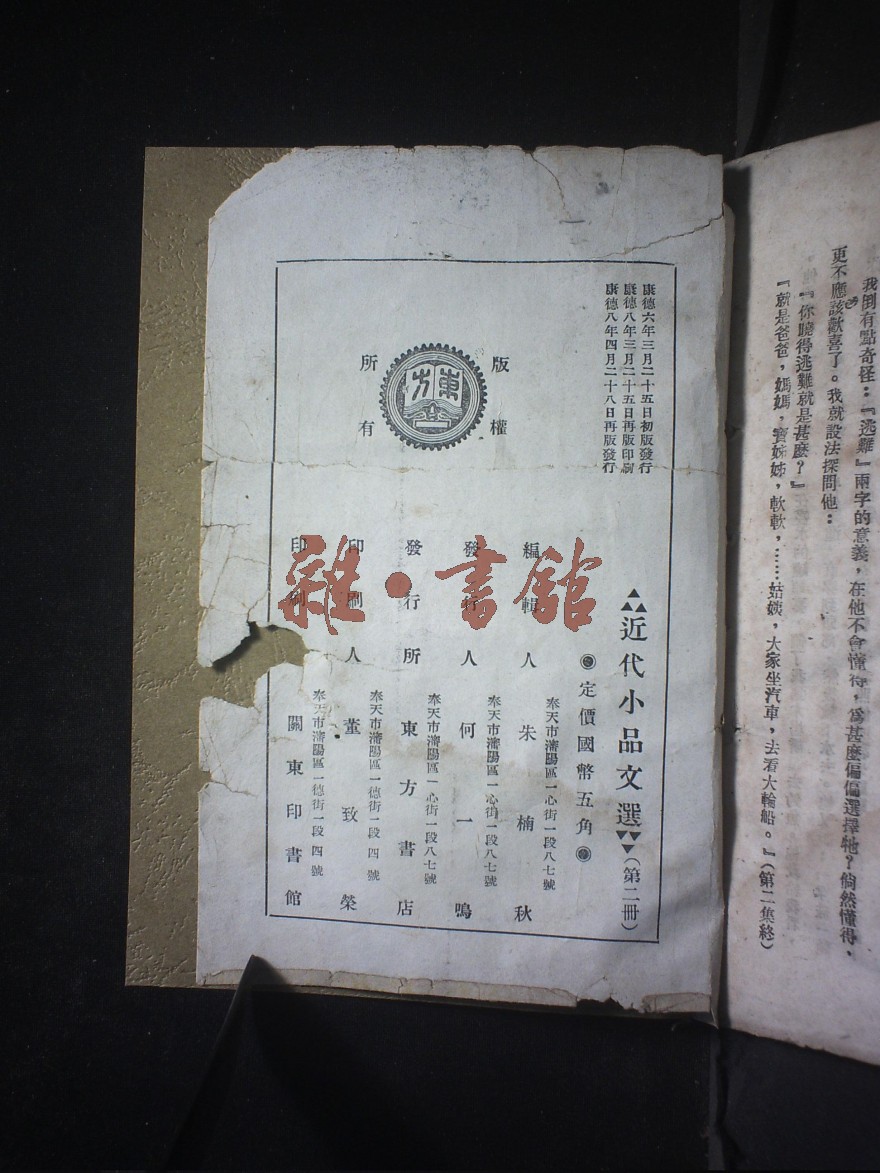 我倒有點奇怪：『逃難』兩字的意義，在他不會懂得，爲甚麼偏偏選擇牠？倘然懂得，
更不應該歡喜了。我就設法探問他：
『你曉得逃難就是甚麼？』
『就是爸爸，媽媽，寶姊姊，軟軟，……姑姨，大家坐汽車，去看大輪船。』（第二集終）
康德六年三月二十五日初版發行
康德八年三月二十五日再版印刷
康德八年四月二十八日再版發行
版權所有
東方
近代小品文選（第二冊）
定價國幣五角
奉天市瀋陽區一心街一段八七號
編輯人朱楠秋
奉天市瀋陽區一心街一段八七號
發行人何一鳴
奉天市瀋陽區一心街一段八七號
發行所東方書店
奉天市瀋陽區一德街一段四號
印刷人董致榮
奉天市瀋陽區一德街一段四號
印刷 關東印書館
雜·書館